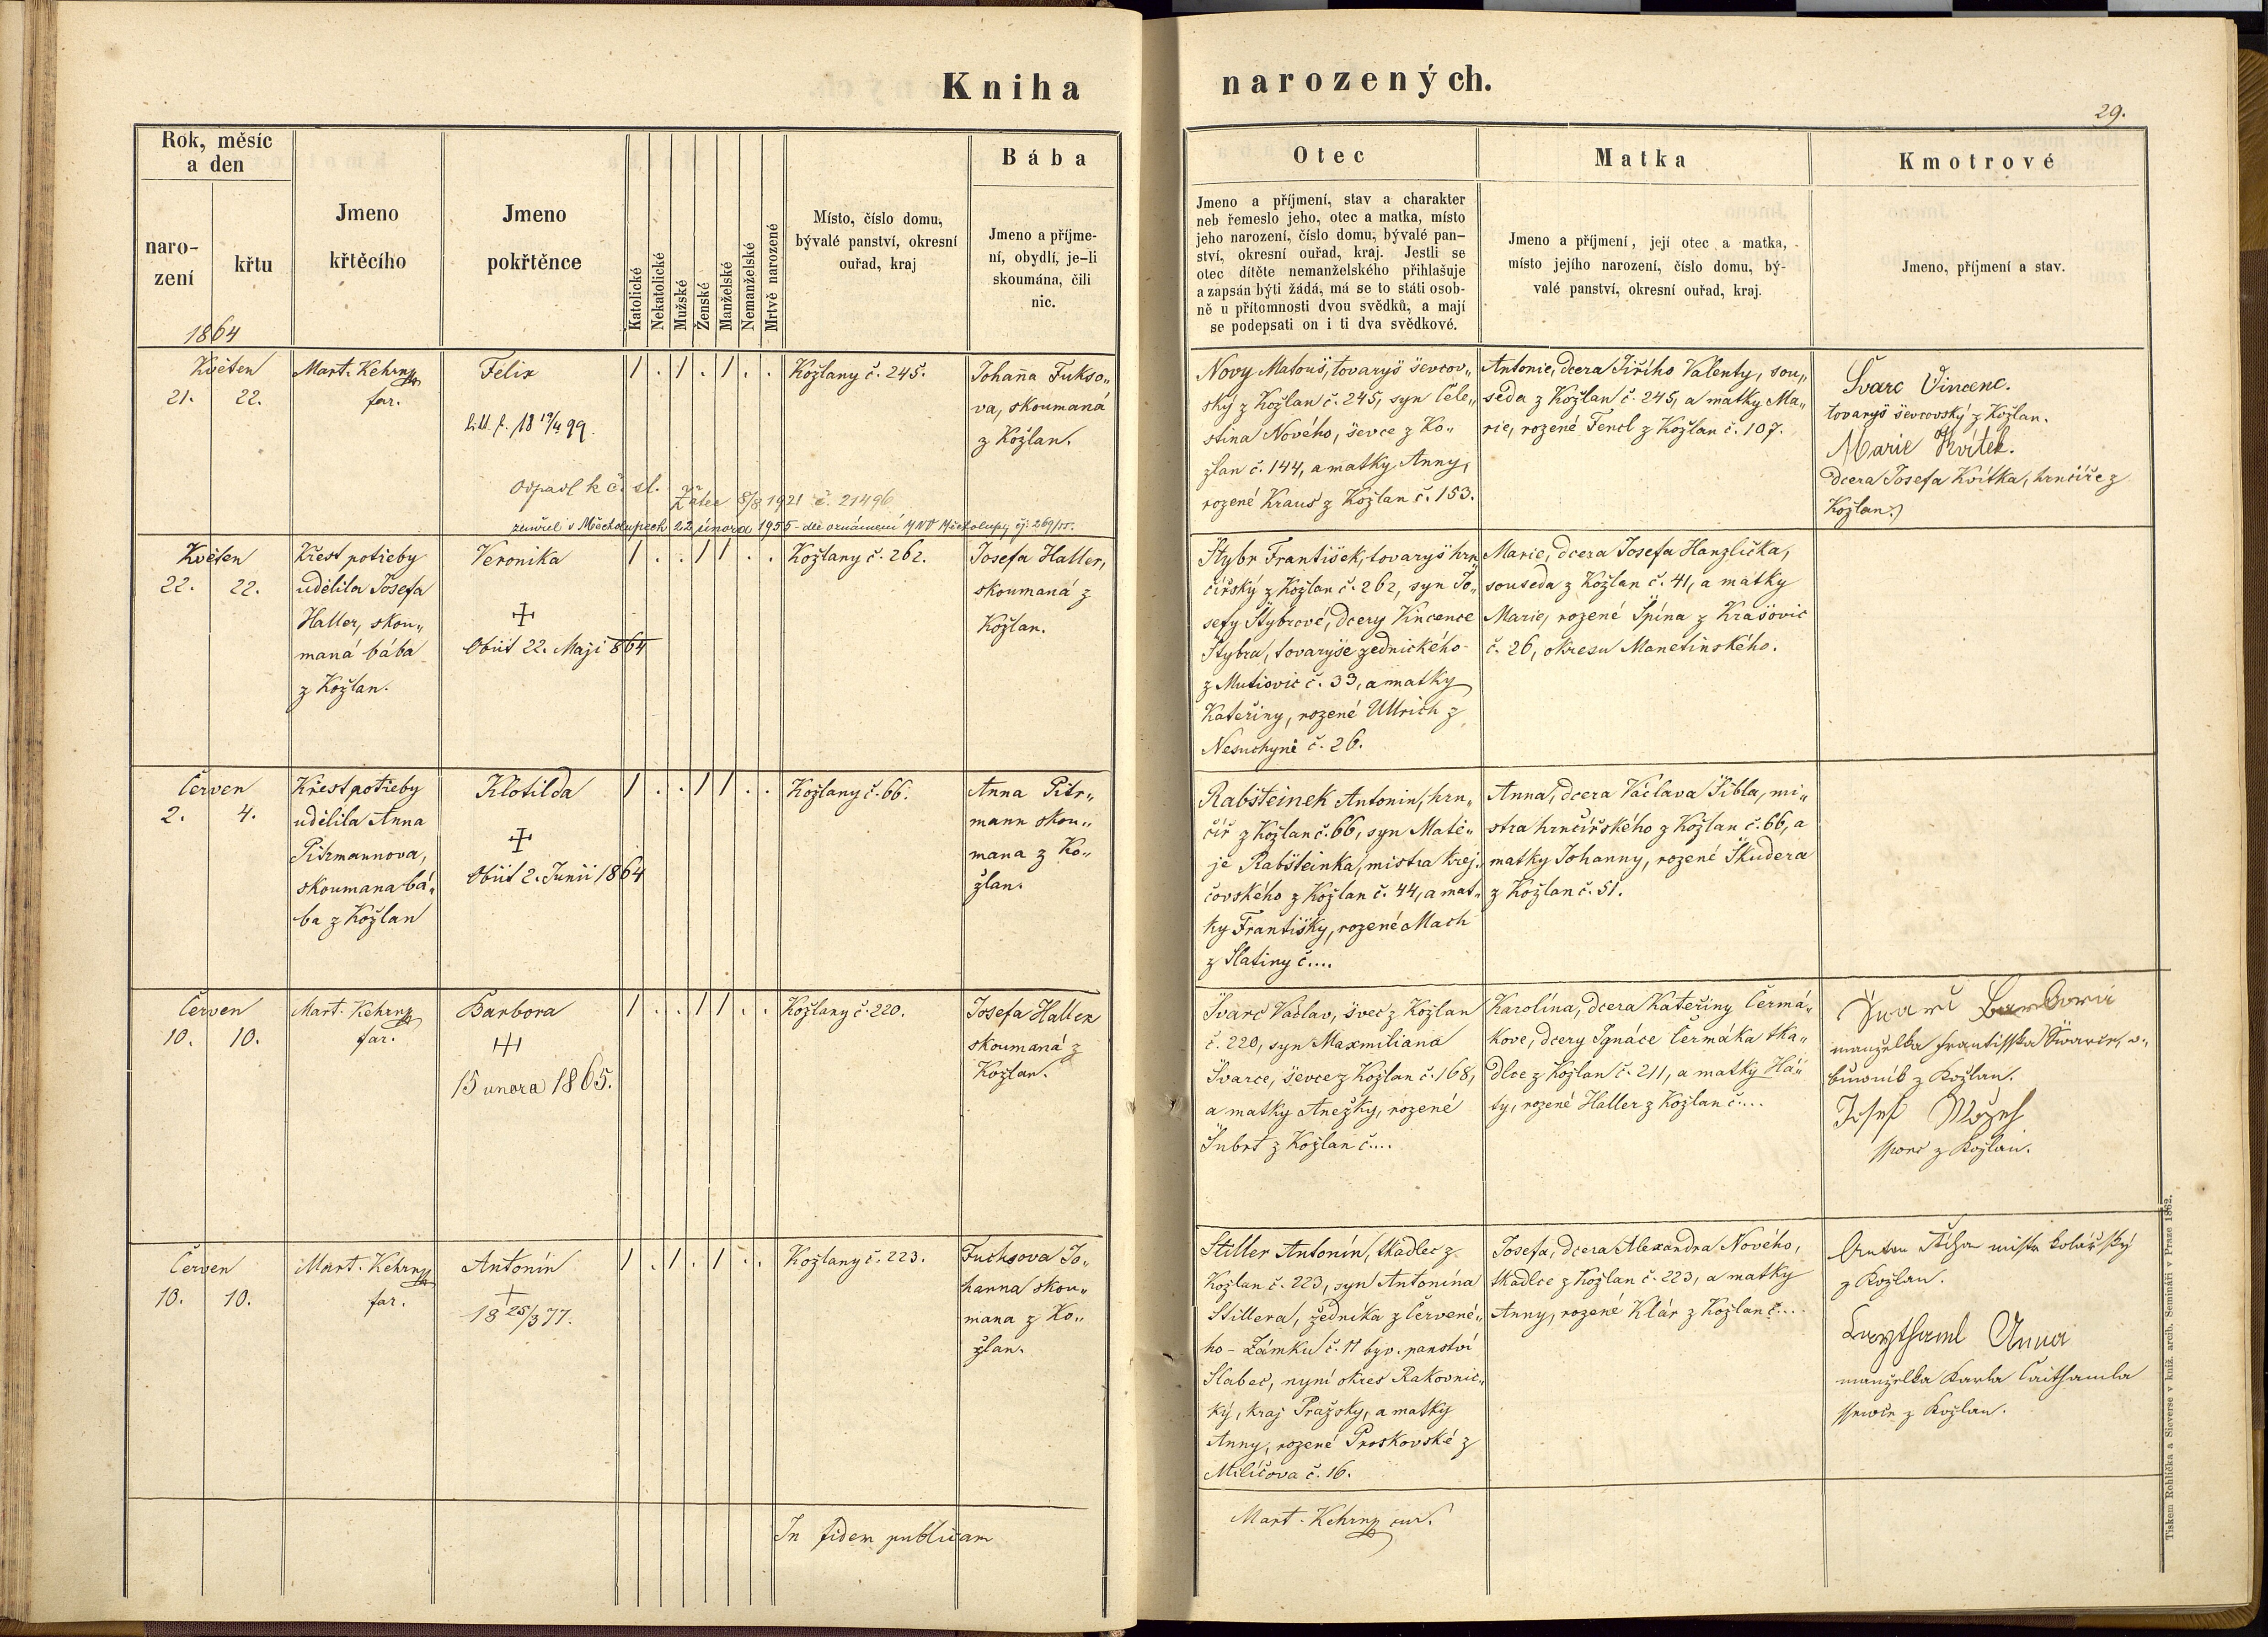 Kniha narozených.
29.
Rok, měsíc
a den
naro-
zení
křtu
1864
Jmeno
křtěcího
Jmeno
pokřtěnce
Katolické
Nekatolické
Mužské
Ženské
Manželské
Nemanželské
Mrtvě narozené
Místo, číslo domu,
bývalé panství, okresní
ouřad, kraj
Bába
Jmeno a příjme-
ní, obydlí, je-li
skoumána, čili
nic.
Otec
Jmeno a příjmení, stav a charakter
neb řemeslo jeho, otec a matka, místo
jeho narození, číslo domu, bývalé pan-
ství, okresní ouřad, kraj. Jestli se
otec dítěte nemanželského přihlašuje
a zapsán býti žádá, má se to státi osob-
ně u přítomnosti dvou svědků, a mají
se podepsati on i ti dva svědkové.
Matka
Jmeno a příjmení, její otec a matka,
místo jejího narození, číslo domu, bý-
valé panství, okresní ouřad, kraj.
Kmotrové
Jmeno, příjmení a stav.
Květen
21. 22.
Mart. Kehrny
far.
Felix
18 19/4 99.
Odpadl k č. sl.
Žatec 8/8 1921 č. 21496
zemřel v Měcholupech 22 února 1955 dle oznámení MNV Měcholupy čj: 269/55.
1 . 1 . 1 . .
Kožlany č. 245.
Johana Fukso„
va, skoumaná
z Kožlan.
Nový Matouš, tovaryš ševcov„
ský z Kožlan č. 245, syn Cele„
stina Nového, ševce z Ko„
žlan č. 144, a matky Anny,
rozené Kraus z Kožlan č. 153.
Antonie, dcera Jiřího Valenty, sou„
seda z Kožlan č. 245, a matky Ma„
rie, rozené Fencl z Kožlan č. 107.
Švarc Vincenc.
tovaryš ševcovský z Kožlan.
Marie Kvítek.
dcera Josefa Kvítka, hrnčíře z
Kožlan.
Květen
22. 22.
Křest potřeby
udělila Josefa
Haller, skou„
maná bába
z Kožlan.
Veronika
Obiit 22. Maji 864
1 . . 1 1 . .
Kožlany č. 262.
Josefa Haller,
skoumaná z
Kožlan.
Štybr František, tovaryš hrn„
čířský z Kožlan č. 262, syn Jo„
sefy Štybrové, dcery Vincence
Štybra, tovaryše zednického
z Mutiovic č. 33, a matky
Kateřiny, rozené Ullrich z
Nesuchyně č. 26.
Marie, dcera Josefa Hanzlíčka,
souseda z Kožlan č. 41, a matky
Marie, rozené Špína z Krašovic
č. 26, okresu Manetinského.
Červen
2. 4.
Křest potřeby
udělila Anna
Pitrmannova,
skoumana bá„
ba z Kožlan
Klotilda
Obiit 2. Junii 1864
1 . . 1 1 . .
Kožlany č. 66.
Anna Pitr„
mann skou„
mana z Ko„
žlan.
Rabšteinek Antonin, hrn„
číř z Kožlan č. 66, syn Matě„
je Rabšteinka, mistra krej„
čovského z Kožlan č. 44, a mat„
ky Františky, rozené Mach
z Slatiny č....
Anna, dcera Václava Šibla, mi„
stra hrnčířského z Kožlan č. 66, a
matky Johanny, rozené Škudera
z Kožlan č. 51.
Červen
10. 10.
Mart. Kehrny
far.
Barbora
15 unora 1865.
1 . . 1 1 . .
Kožlany č. 220.
Josefa Haller
skoumaná z
Kožlan.
Švarc Václav, švec z Kožlan
č. 220, syn Maxmiliana
Švarce, ševce z Kožlan č. 168,
a matky Anežky, rozené
Šubrt z Kožlan č....
Karolina, dcera Kateřiny Čermá„
kove, dcery Ignáce Čermáka tka„
dlce z Kožlan č. 211, a matky Há„
ty, rozené Haller z Kožlan č....
manželka Frantisska
z Kožlan.
Josef
z Kožlan.
Červen
10. 10.
Mart. Kehrny
far.
Antonín
18 25/3 77.
1 . 1 . 1 . .
Kožlany č. 223.
Fuchsova Jo„
hanna skou„
mana z Ko„
žlan.
Stiller Antonín, tkadlec z
Kožlan č. 223, syn Antonína
Stillera, zedníka z Červené„
ho-Zámku č. 11 byv. panství
Slabec, nyní okres Rakovnic„
ký, kraj Pražsky, a matky
Anny, rozené Proskovské z
Milíčova č. 16.
Josefa, dcera Alexandra Nového,
tkadlce z Kožlan č. 223, a matky
Anny, rozené Klár z Kožlan č....
Anton mistr kolářský
z Kožlan.
Anna
manželka Karla
z Kožlan.
In fidem publicam
Mart. Kehrny
Tiskem Rohlíčka a Sieverse v kníž. arcib. Semináři v Praze 1863.